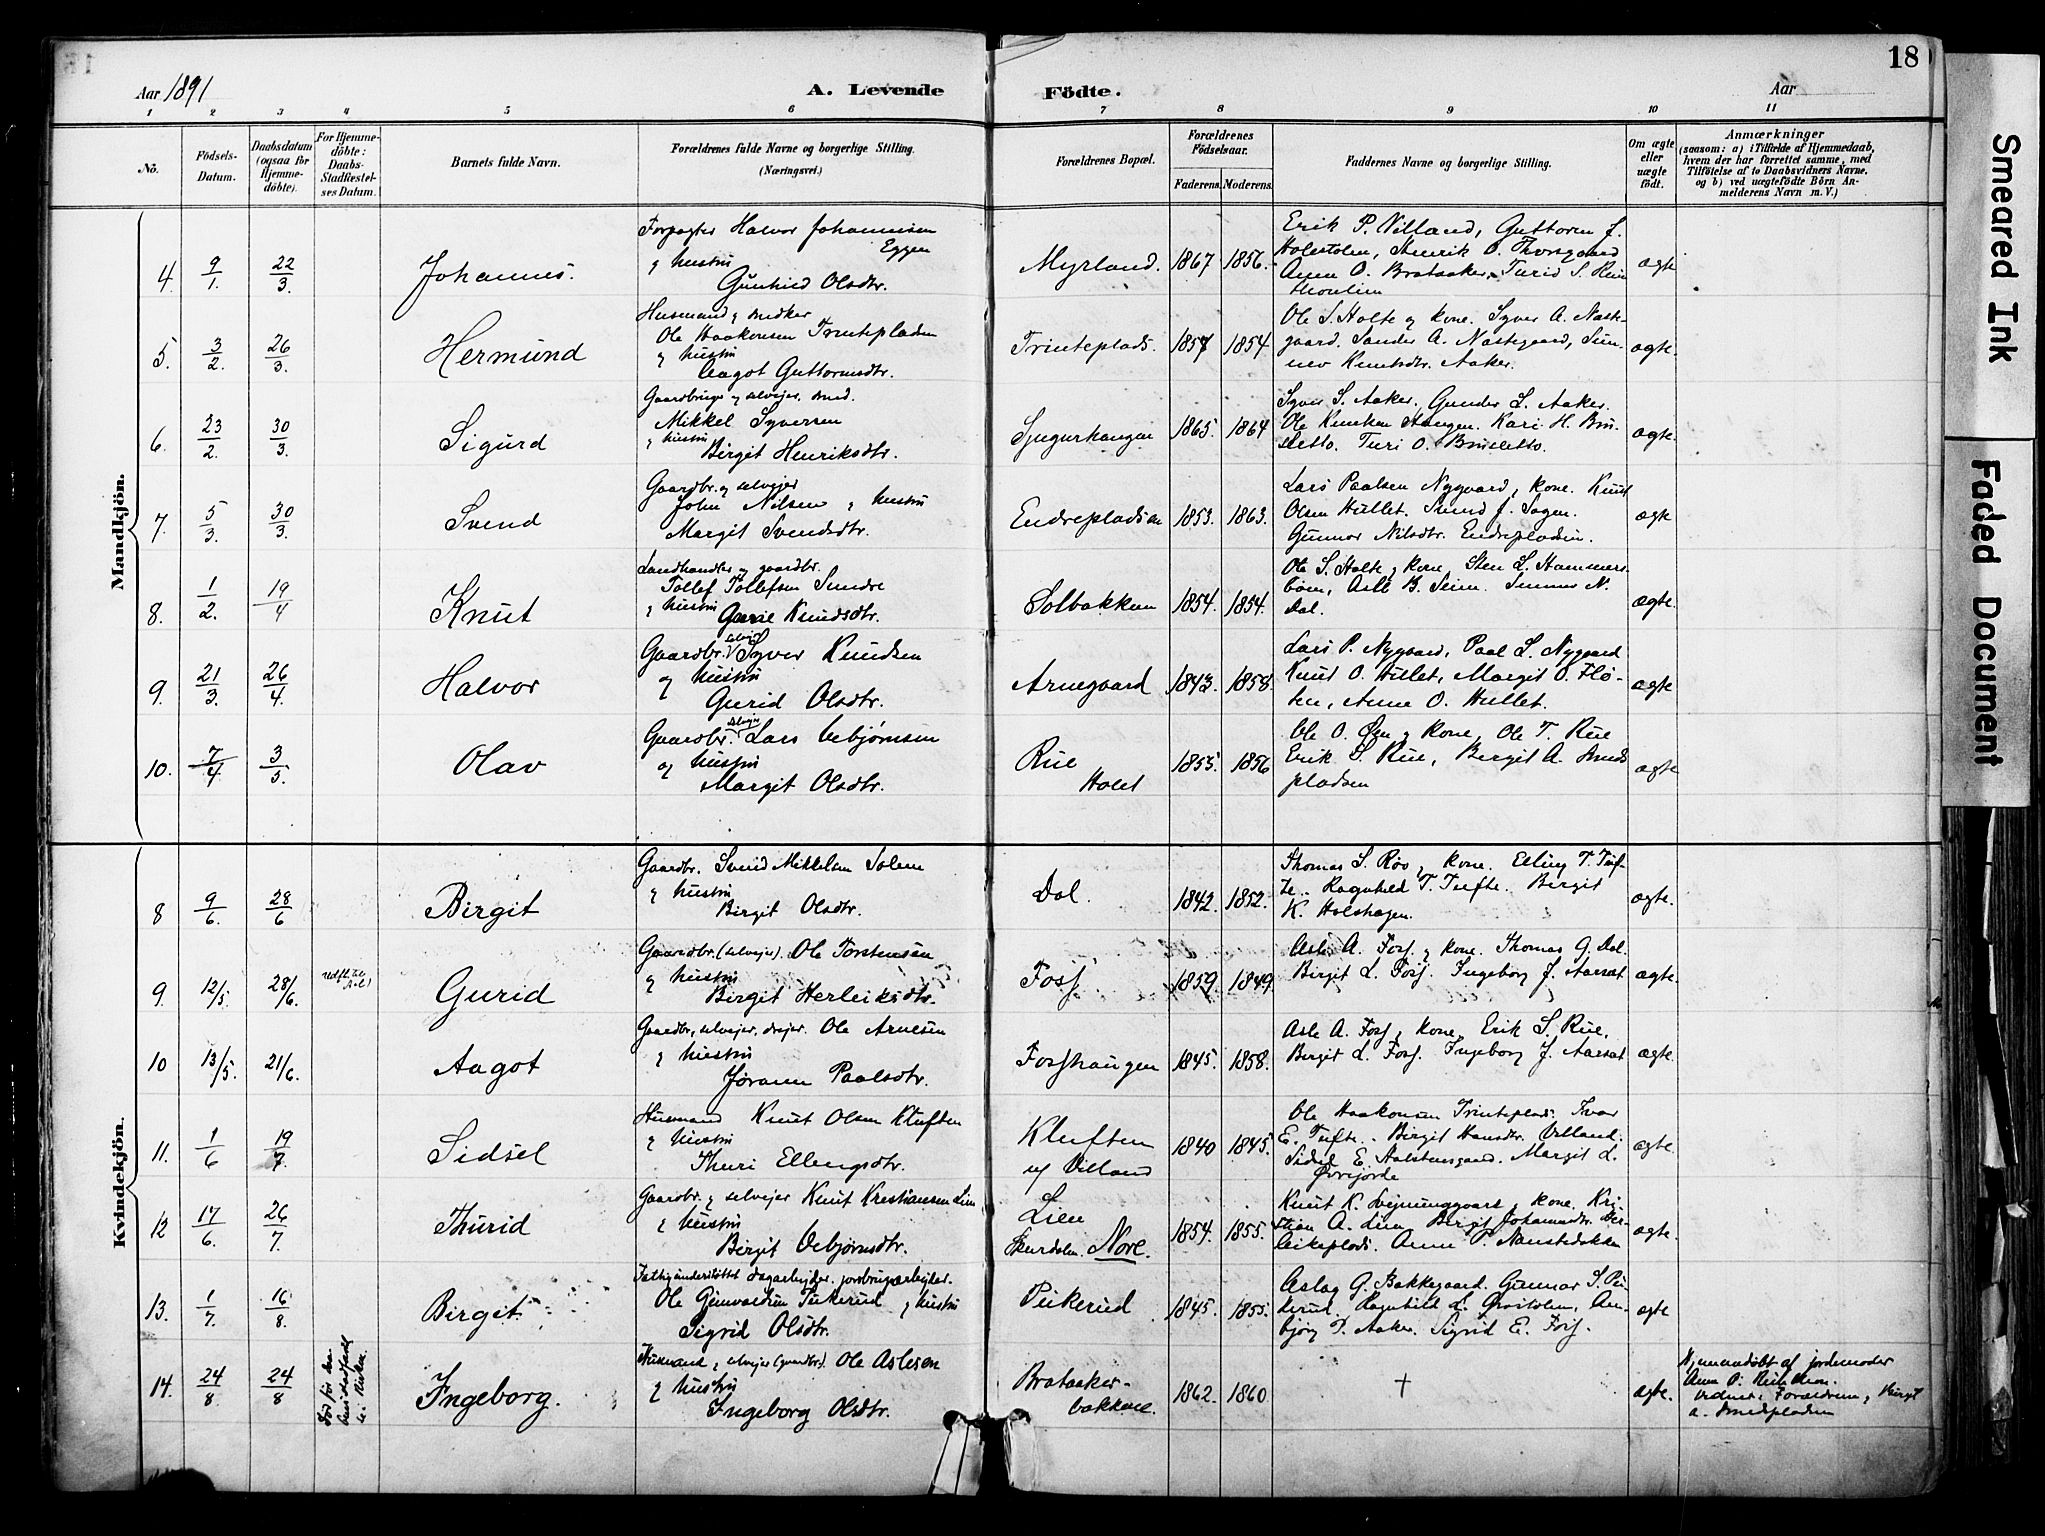 18
Aar 1891
A. Levende Födte.
Aar
1 2 3 4 5 6 7 8 9 10 11
No.
Födsels-Datum.
Daabsdatum (ogsaa för Hjemmedöbte).
For Hjemmedöbte: Daabs-Stadfæstelses Datum.
Barnets fulde Navn.
Forældrenes fulde Navne og borgerlige Stilling. (Næringsvei.)
Forældrenes Bopæl.
Forældrenes Födselsaar.
Faderens. Moderens.
Faddernes Navne og borgerlige Stilling.
Om ægte eller uægte födt.
Anmærkninger
(saasom: a) i Tilfælde af Hjemmedaab,
hvem der har forrettet samme, med
Tilföielse af to Daabsvidners Navne,
og b) ved uægtefödte Börn Anmelderens Navn m. V.)
Mandkjön.
4. 9/1. 22/3. Johannes.
Forpagter Halvor Johannesen
Eggen
og hustru
Gunhild Olsdtr.
Myrland. 1867 1856.
Erik P. Villand, Guttorm J.
Holestolen, Henrik O. Thorsgaard
Anne O. Brataaker, Turid S.
ægte
5. 3/2. 26/3. Hermund
Husmand, snedker
Ole Haakonsen Trinteplassen
og hustru
Aagot Guttormsdtr.
Trinteplads. 1857 1854
Ole S. Holte og kone. Syver A. Næste-
gaard. Sander A. Næstegaard, Sün-
nev Knutsdtr. Aaker.
ægte.
6. 23/2. 30/3. Sigurd
Gaardbruger og selvejer, smed.
Mikkel Syversen
og hustru
Birgit Henriksdtr.
Sjugurhaugen 1865. 1864
Syver S. Aaker. Gunder L. Aaker.
Ole Knutsen Haugen. Kari H. Bru-
sletto. Turi O. Brusletto.
ægte.
7. 5/3. 30/3. Svend
Gaardbr. og selvejer
John Nilsen og hustru
Margit Svendsdtr.
Endrepladsen 1853. 1863.
Lars Paalsen Nygaard, kone. Knut
Olsen Hullet. Svend J. Sagen.
Gunnor Nilsdtr. Endrepladsen.
ægte
8. 1/2. 19/4 Knut
Landhandler og gaardbr.
Tollef Tollefsen Sundre
og hustru
Gurie Knudsdtr.
Solbakken 1854. 1854.
Ole S. Holte, kone, Sten L. Hammers-
bøen, Asle B. Seim. Sunnev N.
Dal.
ægte.
9. 21/3. 26/4. Halvor
Gaardbr. selvejer Syver Knudsen
og hustru
Gurid Olsdtr.
Arnegaard 1843. 1858.
Lars P. Nygaard, Paal L. Nygaard
Knut O. Hullet, Margit O. Flø-
ten, Anne O. Hullet.
ægte
10. 7/4. 3/5. Olav
Gaardbr. selvejer Lars Vebjørnsen
og hustru
Margit Olsdtr.
Rue
Holet
1855. 1856
Ole O. Øen og kone, Ole T. Rue
Erik S. Rue, Birgit A. Smeds-
pladsen
ægte.
Kvindekjön.
8 9/6. 28/6 Birgit
Gaardbr. Svend Mikkelsen Solem
og hustru
Birgit Olsdtr.
Dal. 1842. 1852.
Thomas S. Røo, kone. Elling T. Tuf-
te. Ragnhild T. Tufte. Birgit
K. Holshagen.
ægte.
9. 12/5. 28/6. Gurid
Gaardbr. (selvejer). Ole Torstensen
og hustru
Birgit Herleiksdtr.
Foss 1859. 1849
Asle A. Foss og kone. Thomas G. Dal.
Birgit L. Foss. Ingeborg J. Aarset.
ægte.
10 13/5. 21/6. Aagot
Gaardbr, selvejer, drejer. Ole Arnesen
og hustru
Jørann Paalsdtr.
Fosshaugen 1845. 1858.
Asle A. Foss, kone. Erik S. Rue.
Birgit L. Foss. Ingeborg J. Aarset
ægte.
11. 1/6 19/7. Sidsel
Husmand Knut Olsen Kluften
og hustru
Thuri Ellingsdtr.
Kluften
u/ Villand
1840 1845.
Ole Haakonsen Trinteplads. Ivar
E. Tufte. Birgit Hansdtr. Villand.
Sidsel E. Halstensgaard. Margit L.
Øvrejorde
ægte.
12 17/6. 26/7. Thurid
Gaardbr. og selvejer Knut Kristiansen Lien
og hustru
Birgit Vebjørnsdtr.
Lien
Skurdalen. Nore.
1854. 1855.
Knut K. kone. Kri-
stian A. Lien. Birgit Johannesdtr. Her-
leiksplads. Anne P.
ægte.
13. 1/7. 16/8. Birgit.
Fattigunderstøttet dagarbejder, jordbrugsarbejder.
Ole Gjervaldsen Peikerud og hustru
Sigrid Olsdtr.
Peikerud 1845. 1855.
Aslag G. Bakkegaard. Gunnar S. Pei-
kerud. Ragnhild L. An-
bjørg P. Aaker. Sigrid E. Foss.
ægte
14. 24/8. 24/8 Ingeborg.
Husmand, selvejer (gaardbr.). Ole Aslesen
og hustru
Ingeborg Olsdtr.
Brataaker-
bakken.
1862. 1860
†
ægte.
Hjemmedøbt af jordemoder
Anne P.
vidner: Forældrene, Birgit
A. Smedpladsen
Smeared Ink
Faded Document